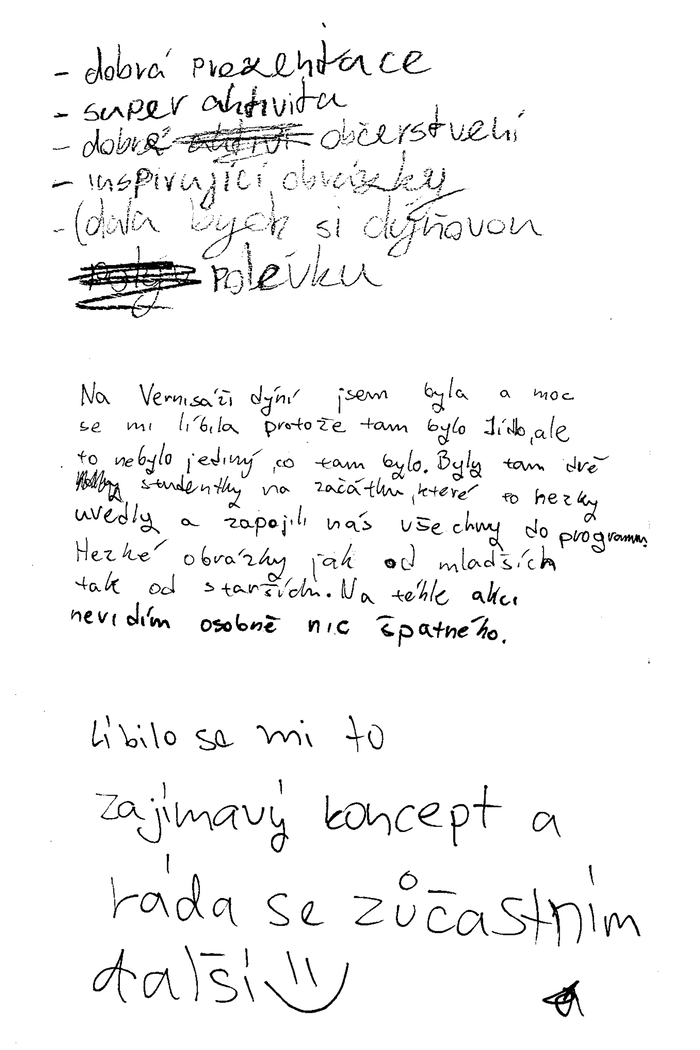 - dobrá prezentace
- super aktivita
- dobré občerstvení
- inspirující obrázky
- (dala bych si dýňovou
polévku
Na Vernisáži dýní jsem byla a moc
se mi líbila protože tam bylo Jídlo, ale
to nebylo jediný, co tam bylo. Byly tam dvě
studentky na začátku, které to hezky
uvedly a zapojili nás všechny do programu.
Hezké obrázky jak od mladších
tak od starších. Na téhle akci
nevidím osobně nic špatného.
Líbilo se mi to
zajímavý koncept a
ráda se zůčastním
další